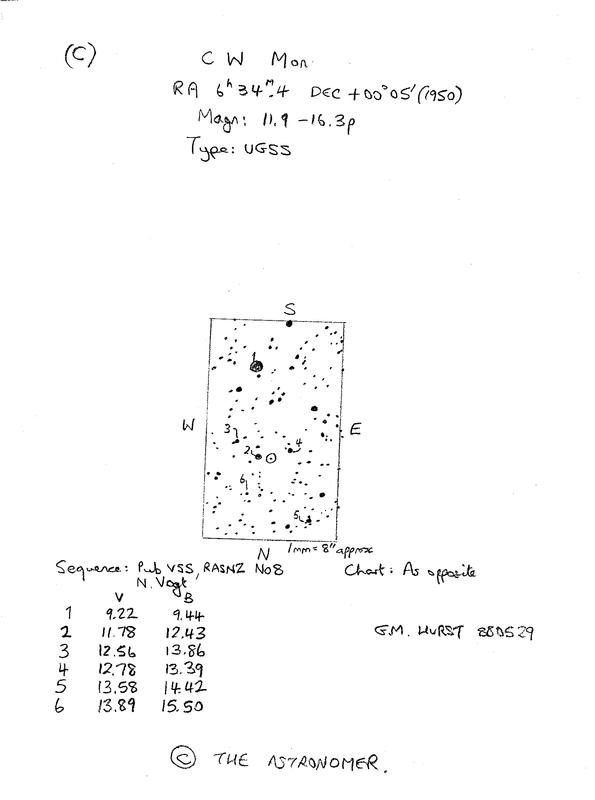 (C)
CW Mon
RA 6h 34m.4 DEC +00°05'(1950)
Magn: 11.9 - 16.3p
Type: UGSS
S
1
W
3
E
2
4
6
5
N
1mm = 8" approx
Sequence: Pub VSS, RASNZ No8
Chart: As opposite
N. Vogt
V B
1 9.22 9.44
2 11.78 12.43
3 12.56 13.86
4 12.78 13.39
5 13.58 14.42
6 13.89 15.50
G.M. HURST 880529
© THE ASTRONOMER.